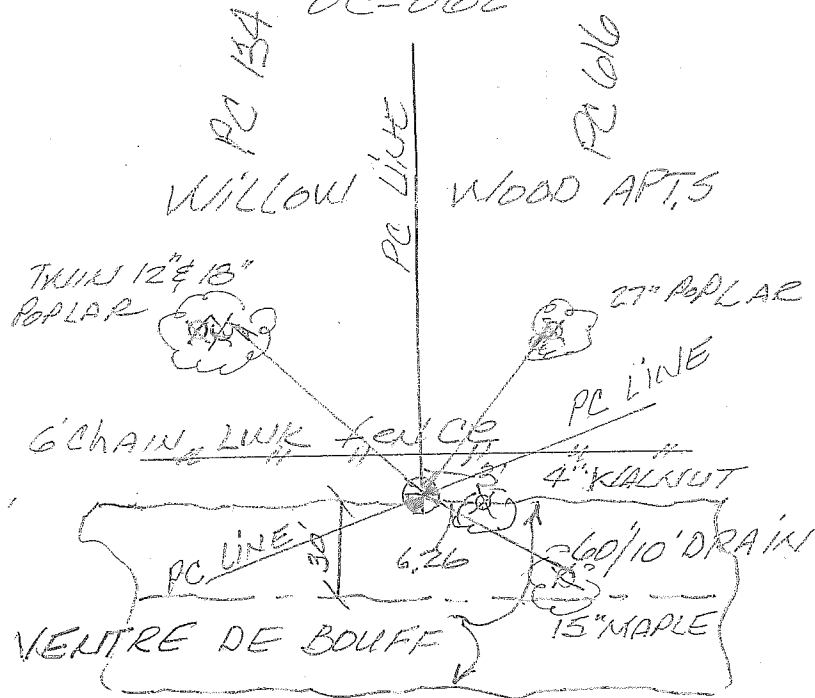 PC 134
PC 616
PC LINE
WILLOW WOOD APT,S
TWIN 12" & 18"
POPLAR
27" POPLAR
PC LINE
6' CHAIN LINK FENCE
3'
4" WALNUT
PC LINE
30'
6.26
60'/10' DRAIN
VENTRE DE BOUFF
15" MAPLE